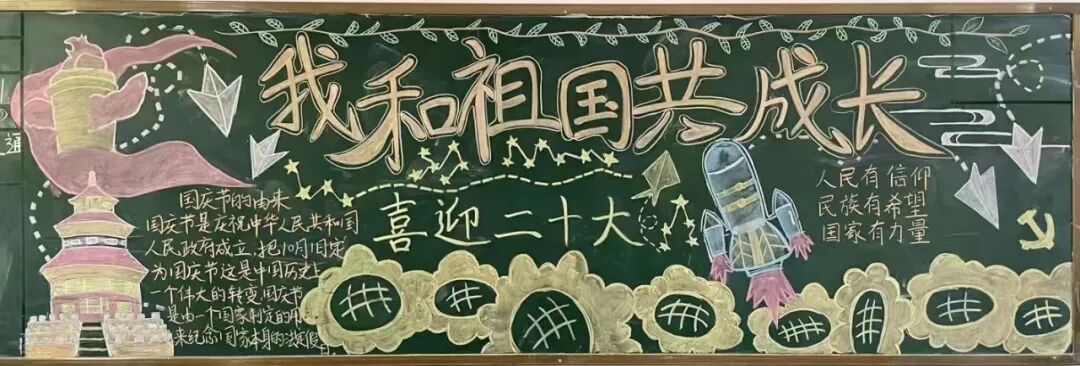 我和祖国共成长
喜迎二十大
国庆节的由来
国庆节是庆祝中华人民共和国
人民政府成立,把10月1日定
为国庆节这是中国历史上
一个伟大的转变,国庆节
是由一个国家制定的用
来纪念国家本身的法定假日
人民有信仰
民族有希望
国家有力量
通